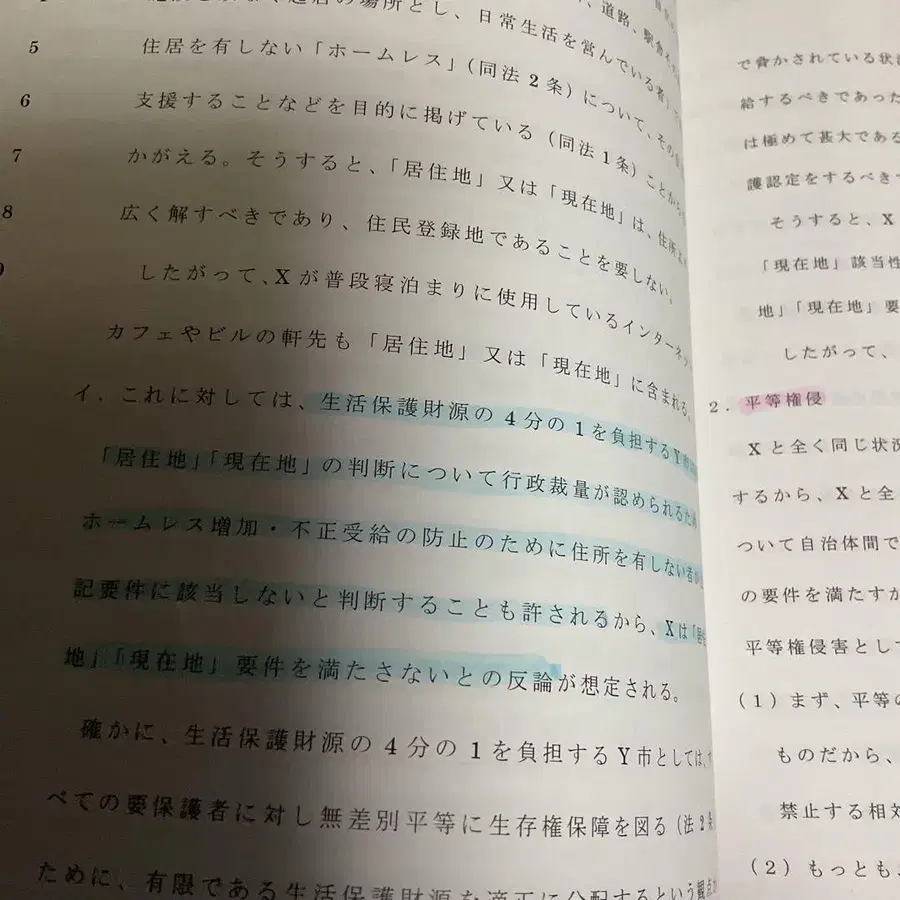 5
住居を有しない「ホームレス」(同法2条)について、その
6
支援することなどを目的に掲げている(同法1条)ことから
7
かがえる。そうすると、「居住地」又は「現在地」は、住所
8
広く解すべきであり、住民登録地であることを要しない。
したがって、Xが普段寝泊まりに使用しているインターネッ
カフェやビルの軒先も「居住地」又は「現在地」に含まれる。
イ.これに対しては、生活保護財源の4分の1を負担するY
「居住地」「現在地」の判断について行政裁量が認められるため
ホームレス増加・不正受給の防止のために住所を有しない者が
記要件に該当しないと判断することも許されるから、Xは「居
地」「現在地」要件を満たさないとの反論が想定される。
確かに、生活保護財源の4分の1を負担するY市としては、
べての要保護者に対し無差別平等に生存権保障を図る(法2条
ために、有限である生活保護財源を適正に分配するという観点
で脅かされている状
給するべきであった
は極めて甚大である
護認定をするべき
そうすると、X
「現在地」該当性
地」「現在地」要
したがって、
2.平等権侵
Xと全く同じ状況
するから、Xと全
ついて自治体間で
の要件を満たすか
平等権侵害として
(1)まず、平等の
ものだから、
禁止する相対
(2)もっとも、